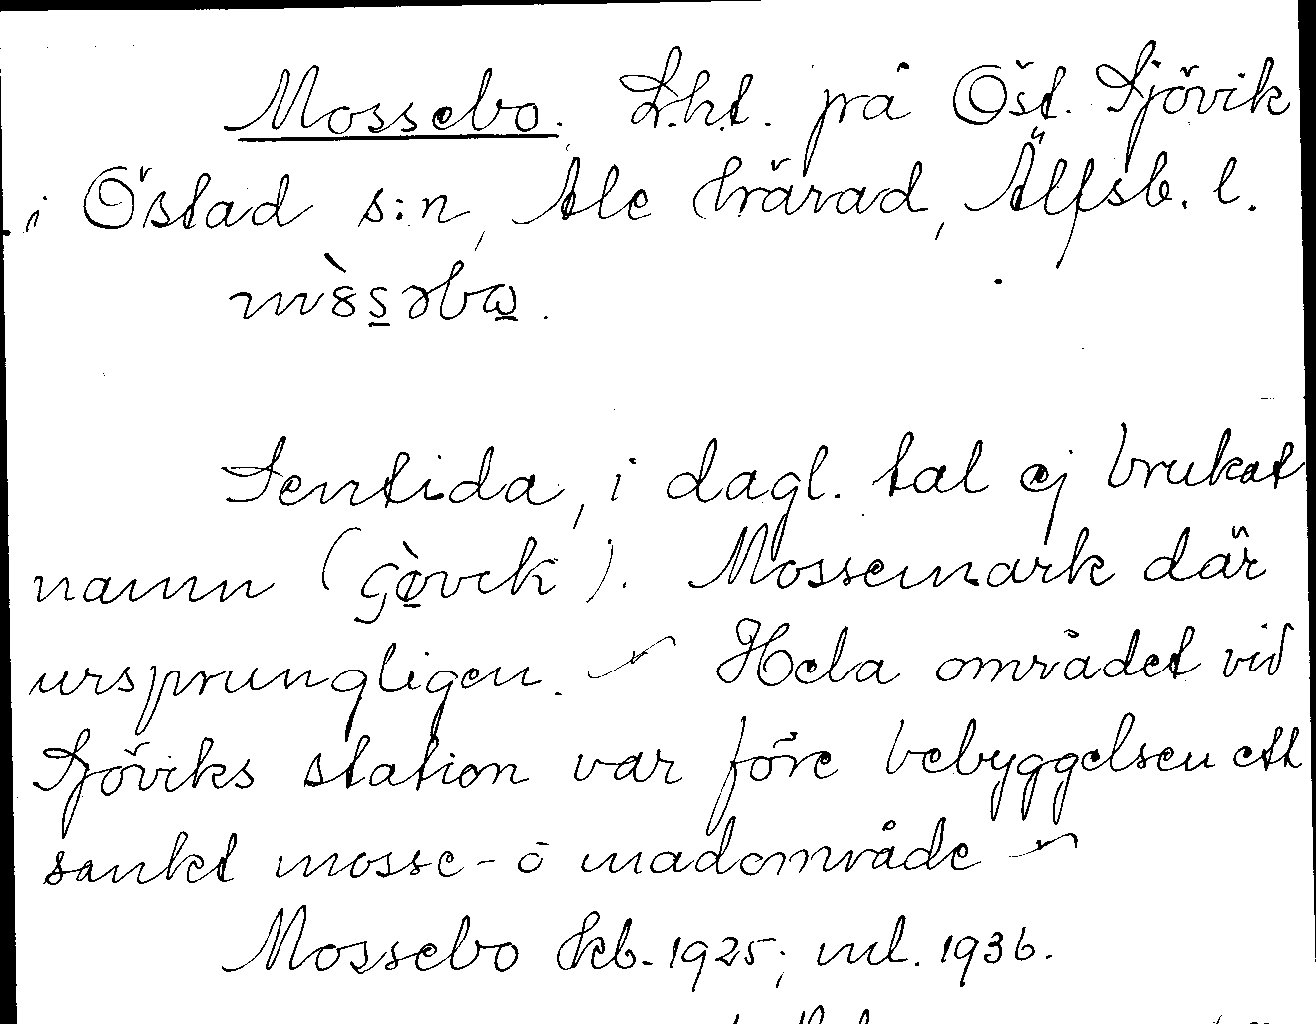 Mossebo. L.h.t. på Öst. Sjövik
i Östad s:n, Ale härad, Älfsb. l.
mòsəbo.
Sentida, i dagl. tal ej brukat
namn (Gòvik). Mossemark där
ursprungligen. ~ Hela området vid
Sjöviks station var före bebyggelsen ett
sankt mosse- o madområde ~
Mossebo kb. 1925; ml. 1936.